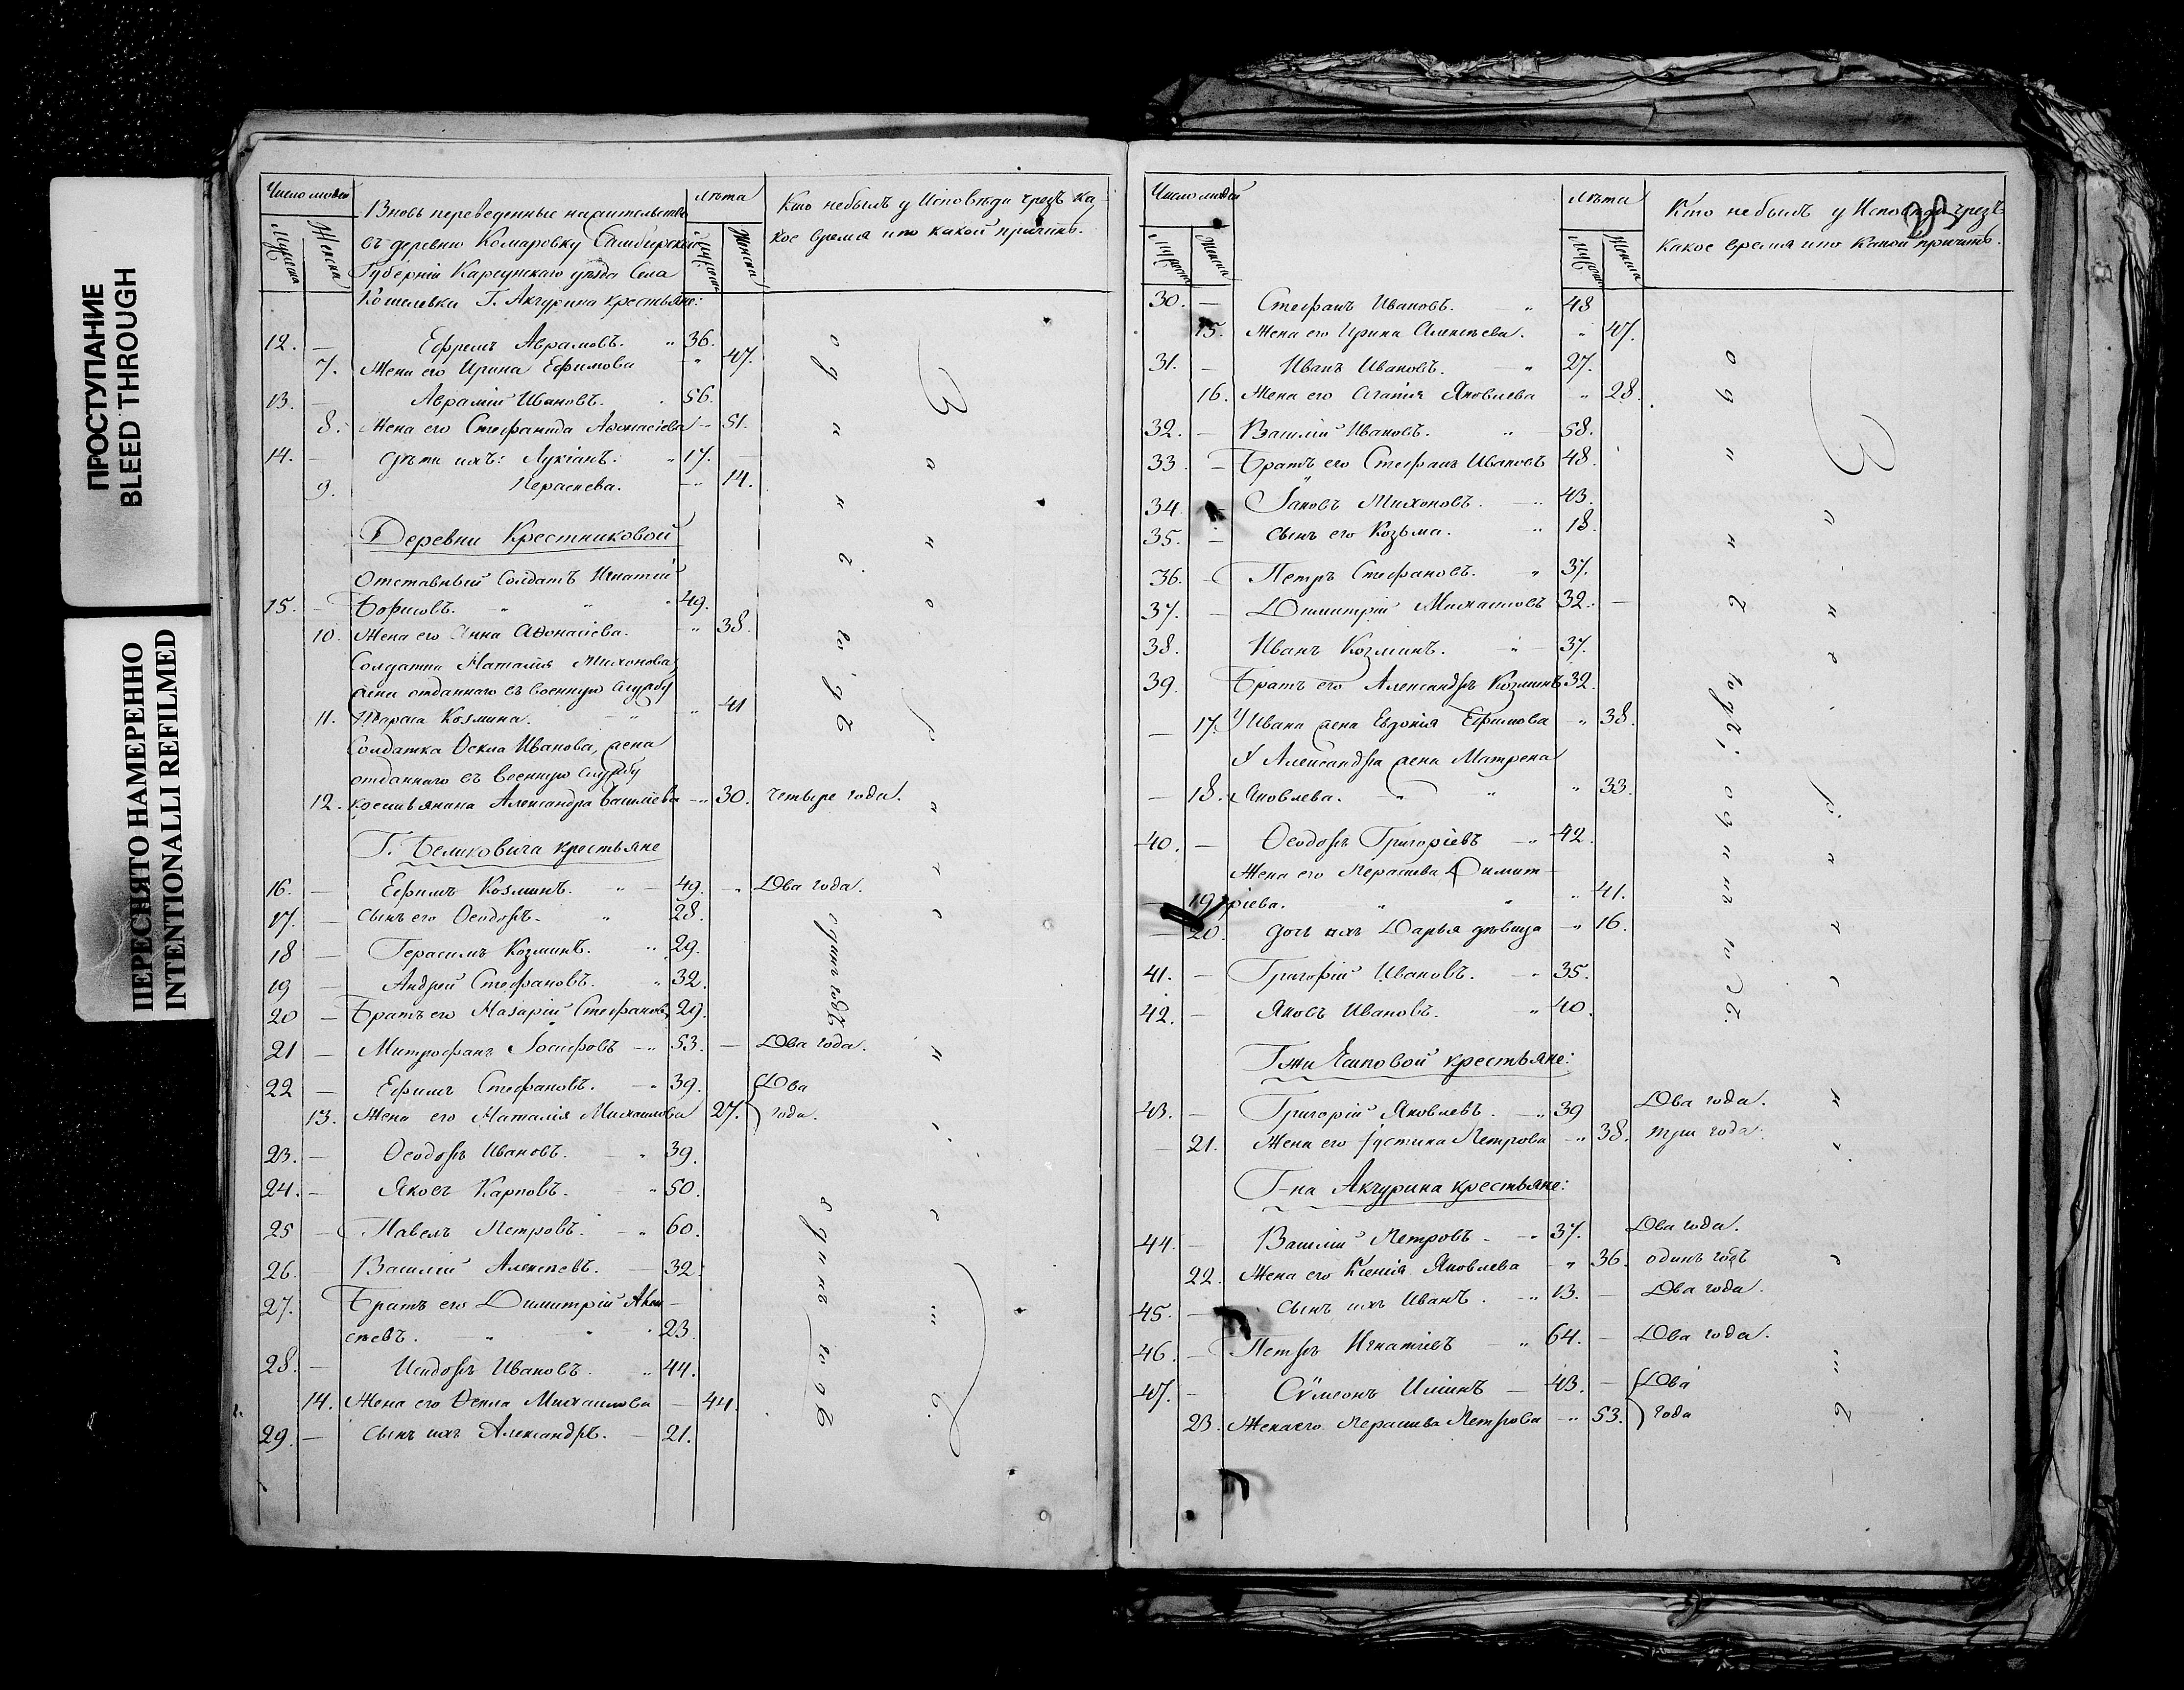 ПРОСТУПАНИЕ
BLEED THROUGH
ПЕРЕСНЯТО НАМЕРЕННО
INTENTIONALLI REFILMED
Число людей
Мужеска
Женска
Вновь переведенные на жительство
въ деревню Комаровку Симбирской
Губерніи Карсунскаго уѣзда Села
Кошелевки Г. Акчурина крестьяне:
Лѣта
Мужеска
Женска
Кто небылъ у Исповѣди чрезъ ка-
кое время и по какой причинѣ.
12. — Ефремъ Аврамовъ. " 36.
7. Жена его Ирина Ефимова " 47.
13. — Аврамій Ивановъ. 56.
8. Жена его Стефанида Аѳонасіева " 51.
14. — Дѣти ихъ: Лукіанъ. " 17.
9. Параскева. " 14.
Деревни Крестниковой
Отставный Солдатъ Игнатій
15. — Борисовъ. " " " 49.
10. Жена его Анна Аѳонасіева. " 38.
Солдатка Наталія
жена отданнаго въ военную службу
11. Тараса Козмина. " " 41
Солдатка Ѳекла Иванова, жена
отданнаго въ военную службу
12. крестьянина Александра Василіева " 30. четыре года.
Г. Беликовича крестьяне
16. — Ефимъ Козминъ. " 49. " Два года.
17. — Сынъ его Ѳеодоръ. " 28.
18 — Герасимъ Козминъ. " 29.
19 — Андрей Стефановъ. " 32.
20 — Братъ его Назарій Стефановъ 29.
21 — Митрофанъ Іосифовъ " 53. — Два года.
22 — Ефимъ Стефановъ. " 39. Два
13. Жена его Наталія Михаилова 27. года.
23. — Ѳеодоръ Ивановъ. " 39.
24. — Яковъ Карповъ. " 50.
25 — Павелъ Петровъ. " 60.
26. Василій Алексѣевъ. — 32.
27. Братъ его Димитрій Алек-
сѣевъ. " " " 23.
28. — Исидоръ Ивановъ. " 44.
14. Жена его Ѳекла Михаилова — 44.
29. — Сынъ ихъ Александръ. — 21.
одинъ годъ
одинъ годъ
За
Число людей
Мужеска
Женска
Лѣта
Мужеска
Женска
Кто небылъ у Исповѣди чрезъ
какое время и по какой причинѣ.
30. — Стефанъ Ивановъ. " 48
15. Жена его Ирина Алексѣева. " 47.
31. — Иванъ Ивановъ. " 27.
16. Жена его Агапія Яковлева " 28.
32. — Василій Ивановъ. " 58.
33 — Братъ его Стефанъ Ивановъ 48.
34. — Іаковъ " 43.
35. — Сынъ его Козьма. " 18.
36. — Петръ Стефановъ. " 37.
37. — Димитрій Михаиловъ 32.
38. Иванъ Козминъ. " 37.
39. Братъ его Александръ Козминъ 32.
— 17. У Ивана жена Евдокія Ефимова " 38.
У Александра жена Матрена
— 18. Яковлева. " " " 33.
40. — Ѳеодоръ Григоріевъ " 42
Жена его Параскева Димит-
— 19 ріева. " " " 41.
— 20. Дочь ихъ Дарья дѣвица " 16.
41. — Григорій Ивановъ. " 35.
42. — Яковъ Ивановъ. " 40.
Г-жи Яшповой крестьяне:
43. — Григорій Яковлевъ. " 39 Два года.
— 21. Жена его Іустина Петрова " 38. три года.
Г-на Акчурина крестьяне:
44. — Василій Петровъ " 37. Два года.
22. Жена его Ксенія Яковлева " 36. одинъ годъ
45. — Сынъ ихъ Иванъ. " 13. — Два года.
46. — Петръ Игнатіевъ " 64. — Два года.
47. — Сѵмеонъ Илиинъ — 43. — Два
23. Жена его Параскева Петрова " 53. года